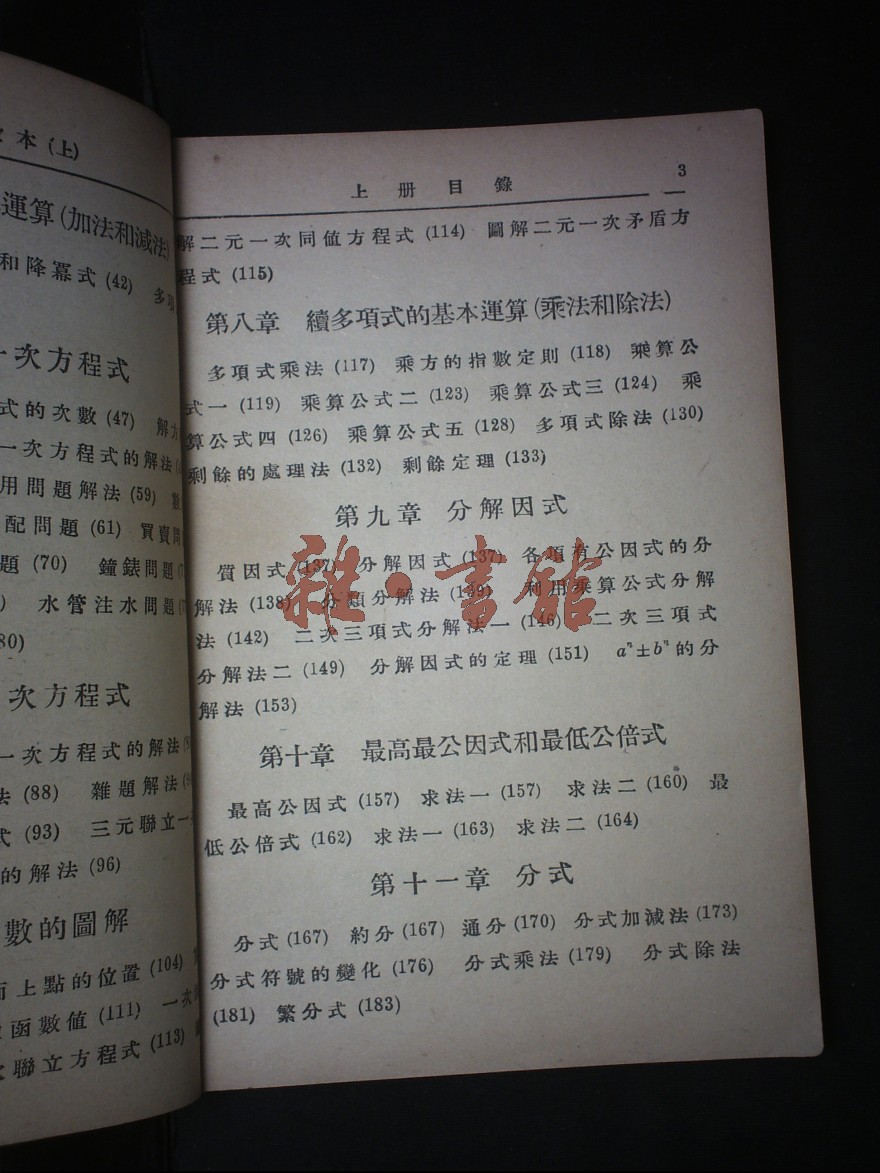 本(上)
運算(加法和減法)
和降冪式 (42) 多項
一次方程式
式的次數 (47) 解方
一次方程式的解法
用問題解法 (59)
配問題 (61) 買賣問
題 (70) 鐘錶問題
水管注水問題
80)
次方程式
一次方程式的解法
法 (88) 雜題解法
式 (93) 三元聯立一
的解法 (96)
數的圖解
面上點的位置 (104)
函數值 (111) 一次
聯立方程式 (113)
上册目錄 3
解二元一次同值方程式 (114) 圖解二元一次矛盾方
程式 (115)
第八章 續多項式的基本運算(乘法和除法)
多項式乘法 (117) 乘方的指數定則 (118) 乘算公
式一 (119) 乘算公式二 (123) 乘算公式三 (124) 乘
算公式四 (126) 乘算公式五 (128) 多項式除法 (130)
剩餘的處理法 (132) 剩餘定理 (133)
第九章 分解因式
質因式 (137) 分解因式 (137) 各項有公因式的分
解法 (138) 分類分解法 (139) 利用乘算公式分解
法 (142) 二次三項式分解法一 (146) 二次三項式
分解法二 (149) 分解因式的定理 (151) aⁿ±bⁿ的分
解法 (153)
雜·書館
第十章 最高最公因式和最低公倍式
最高公因式 (157) 求法一 (157) 求法二 (160) 最
低公倍式 (162) 求法一 (163) 求法二 (164)
第十一章 分式
分式 (167) 約分 (167) 通分 (170) 分式加減法 (173)
分式符號的變化 (176) 分式乘法 (179) 分式除法
(181) 繁分式 (183)